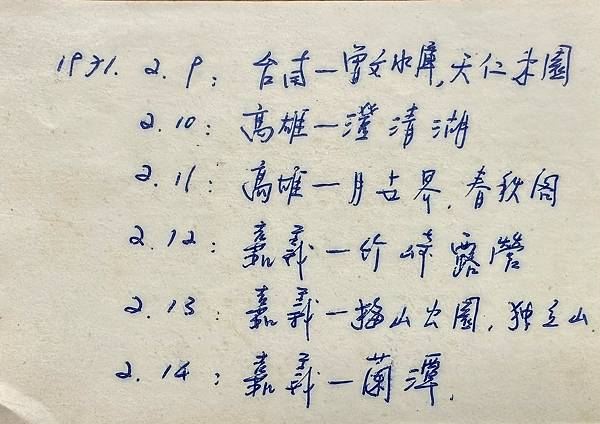 1971. 2. 9：台南—曾文水庫,天仁乐園
2.10：高雄—澄清湖
2.11：高雄—月世界,春秋阁
2.12：嘉義—竹崎露營
2.13：嘉義—梅山公園,独立山
2.14：嘉義—蘭潭.